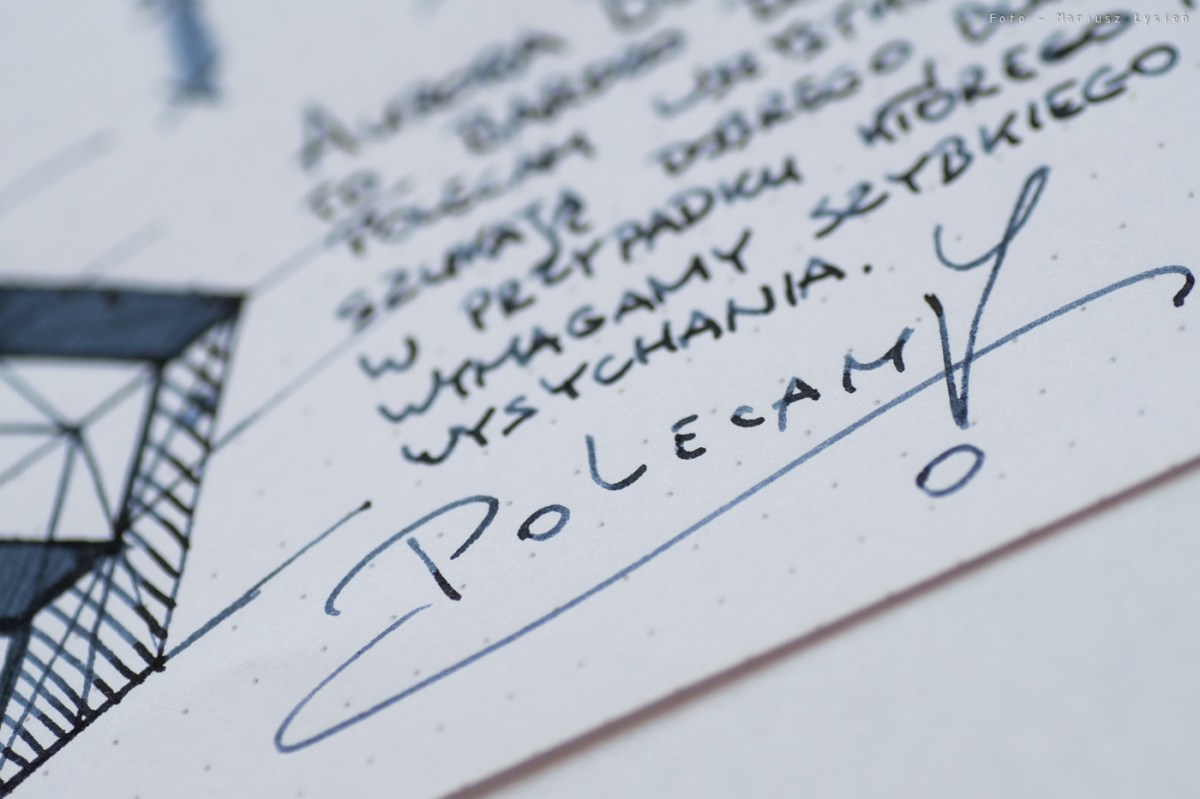 Foto - Mariusz Łysień
AURORA
TO BARDZO
POLECAM
SZUKAJĄ DOBREGO
W PRZYPADKU KTÓREGO
WYMAGAMY SZYBKIEGO
WYSYCHANIA.
POLECAMY!